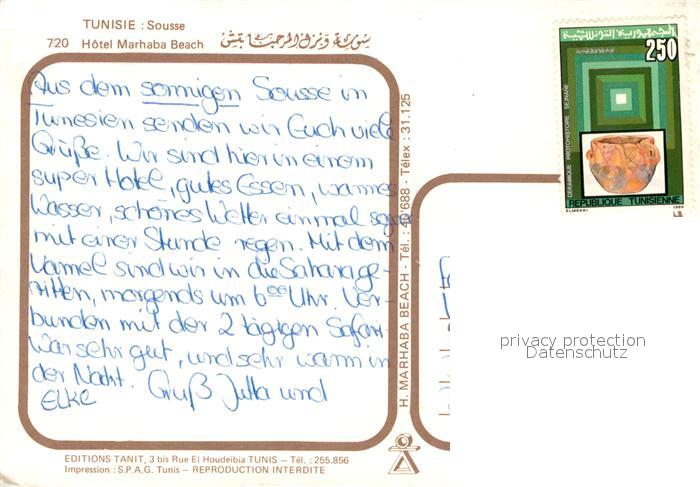 TUNISIE : Sousse
720 Hôtel Marhaba Beach سوسة ونزل المرحبا بيتش
Aus dem sonnigen Sousse in
Tunesien senden wir Euch viele
Grüße. Wir sind hier in einem
super Hotel, gutes Essen, warmes
Wasser, schönes Wetter einmal sogar
mit einer Stunde regen. Mit dem
Kamel sind wir in die Sahara ge-
ritten, morgends um 6⁰⁰ Uhr. Ver-
bunden mit der 2 tägigen Safari.
War sehr gut, und sehr warm in
der Nacht. Gruß Jutta und
Elke
H. MARHABA BEACH - Tél. : 688 - Télex : 31.125
EDITIONS TANIT, 3 bis Rue El Houdeibia TUNIS - Tél. : 255.856
Impression : S.P.A.G. Tunis - REPRODUCTION INTERDITE
الجمهورية التونسية
250
CERAMIQUE PROTOHISTOIRE SEJNANE
REPUBLIQUE TUNISIENNE
ELMEKKI 1986
privacy protection
Datenschutz